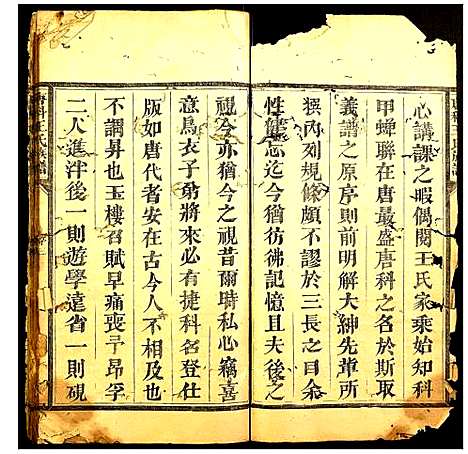 心講課之暇偶閱王氏家乘始知科
甲蟬聯在唐最盛唐科之名於斯取
義譜之原序則前明解大紳先輩所
撰內列規條頗不謬於三長之目余
性健忘迄今猶彷彿記憶且夫後之
視今亦猶今之視昔爾時私心竊喜
意烏衣子弟將來必有捷科名登仕
版如唐代者安在古今人不相及也
不謂昇也玉樓召賦早痛喪予昂孚
二人進泮後一則遊學遠省一則硯
唐科王氏族譜